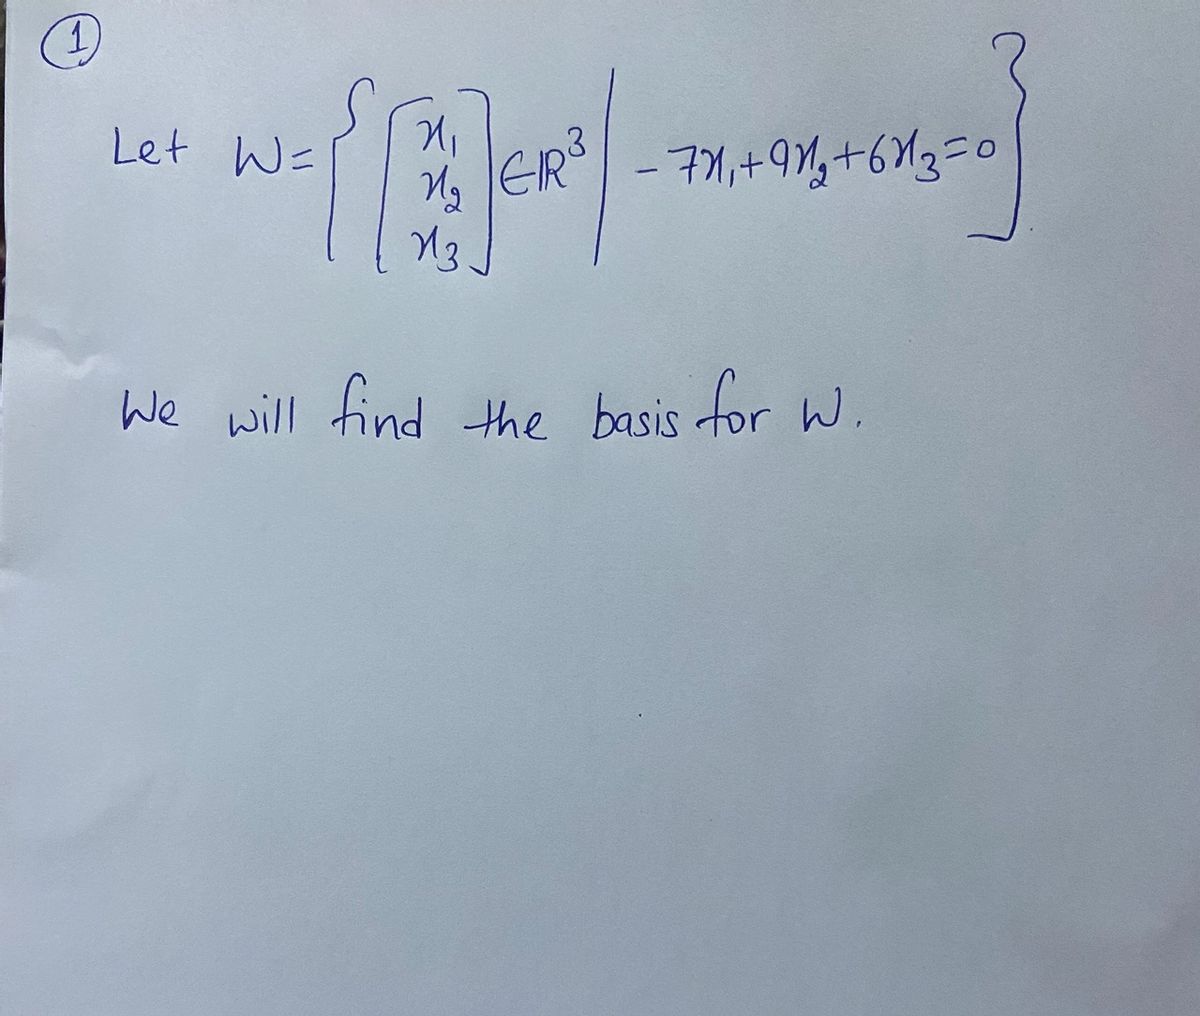 ①
Let W = { [x₁ x₂ x₃] ∈ ℝ³ | -7x₁+9x₂+6x₃=0 }
We will find the basis for W.